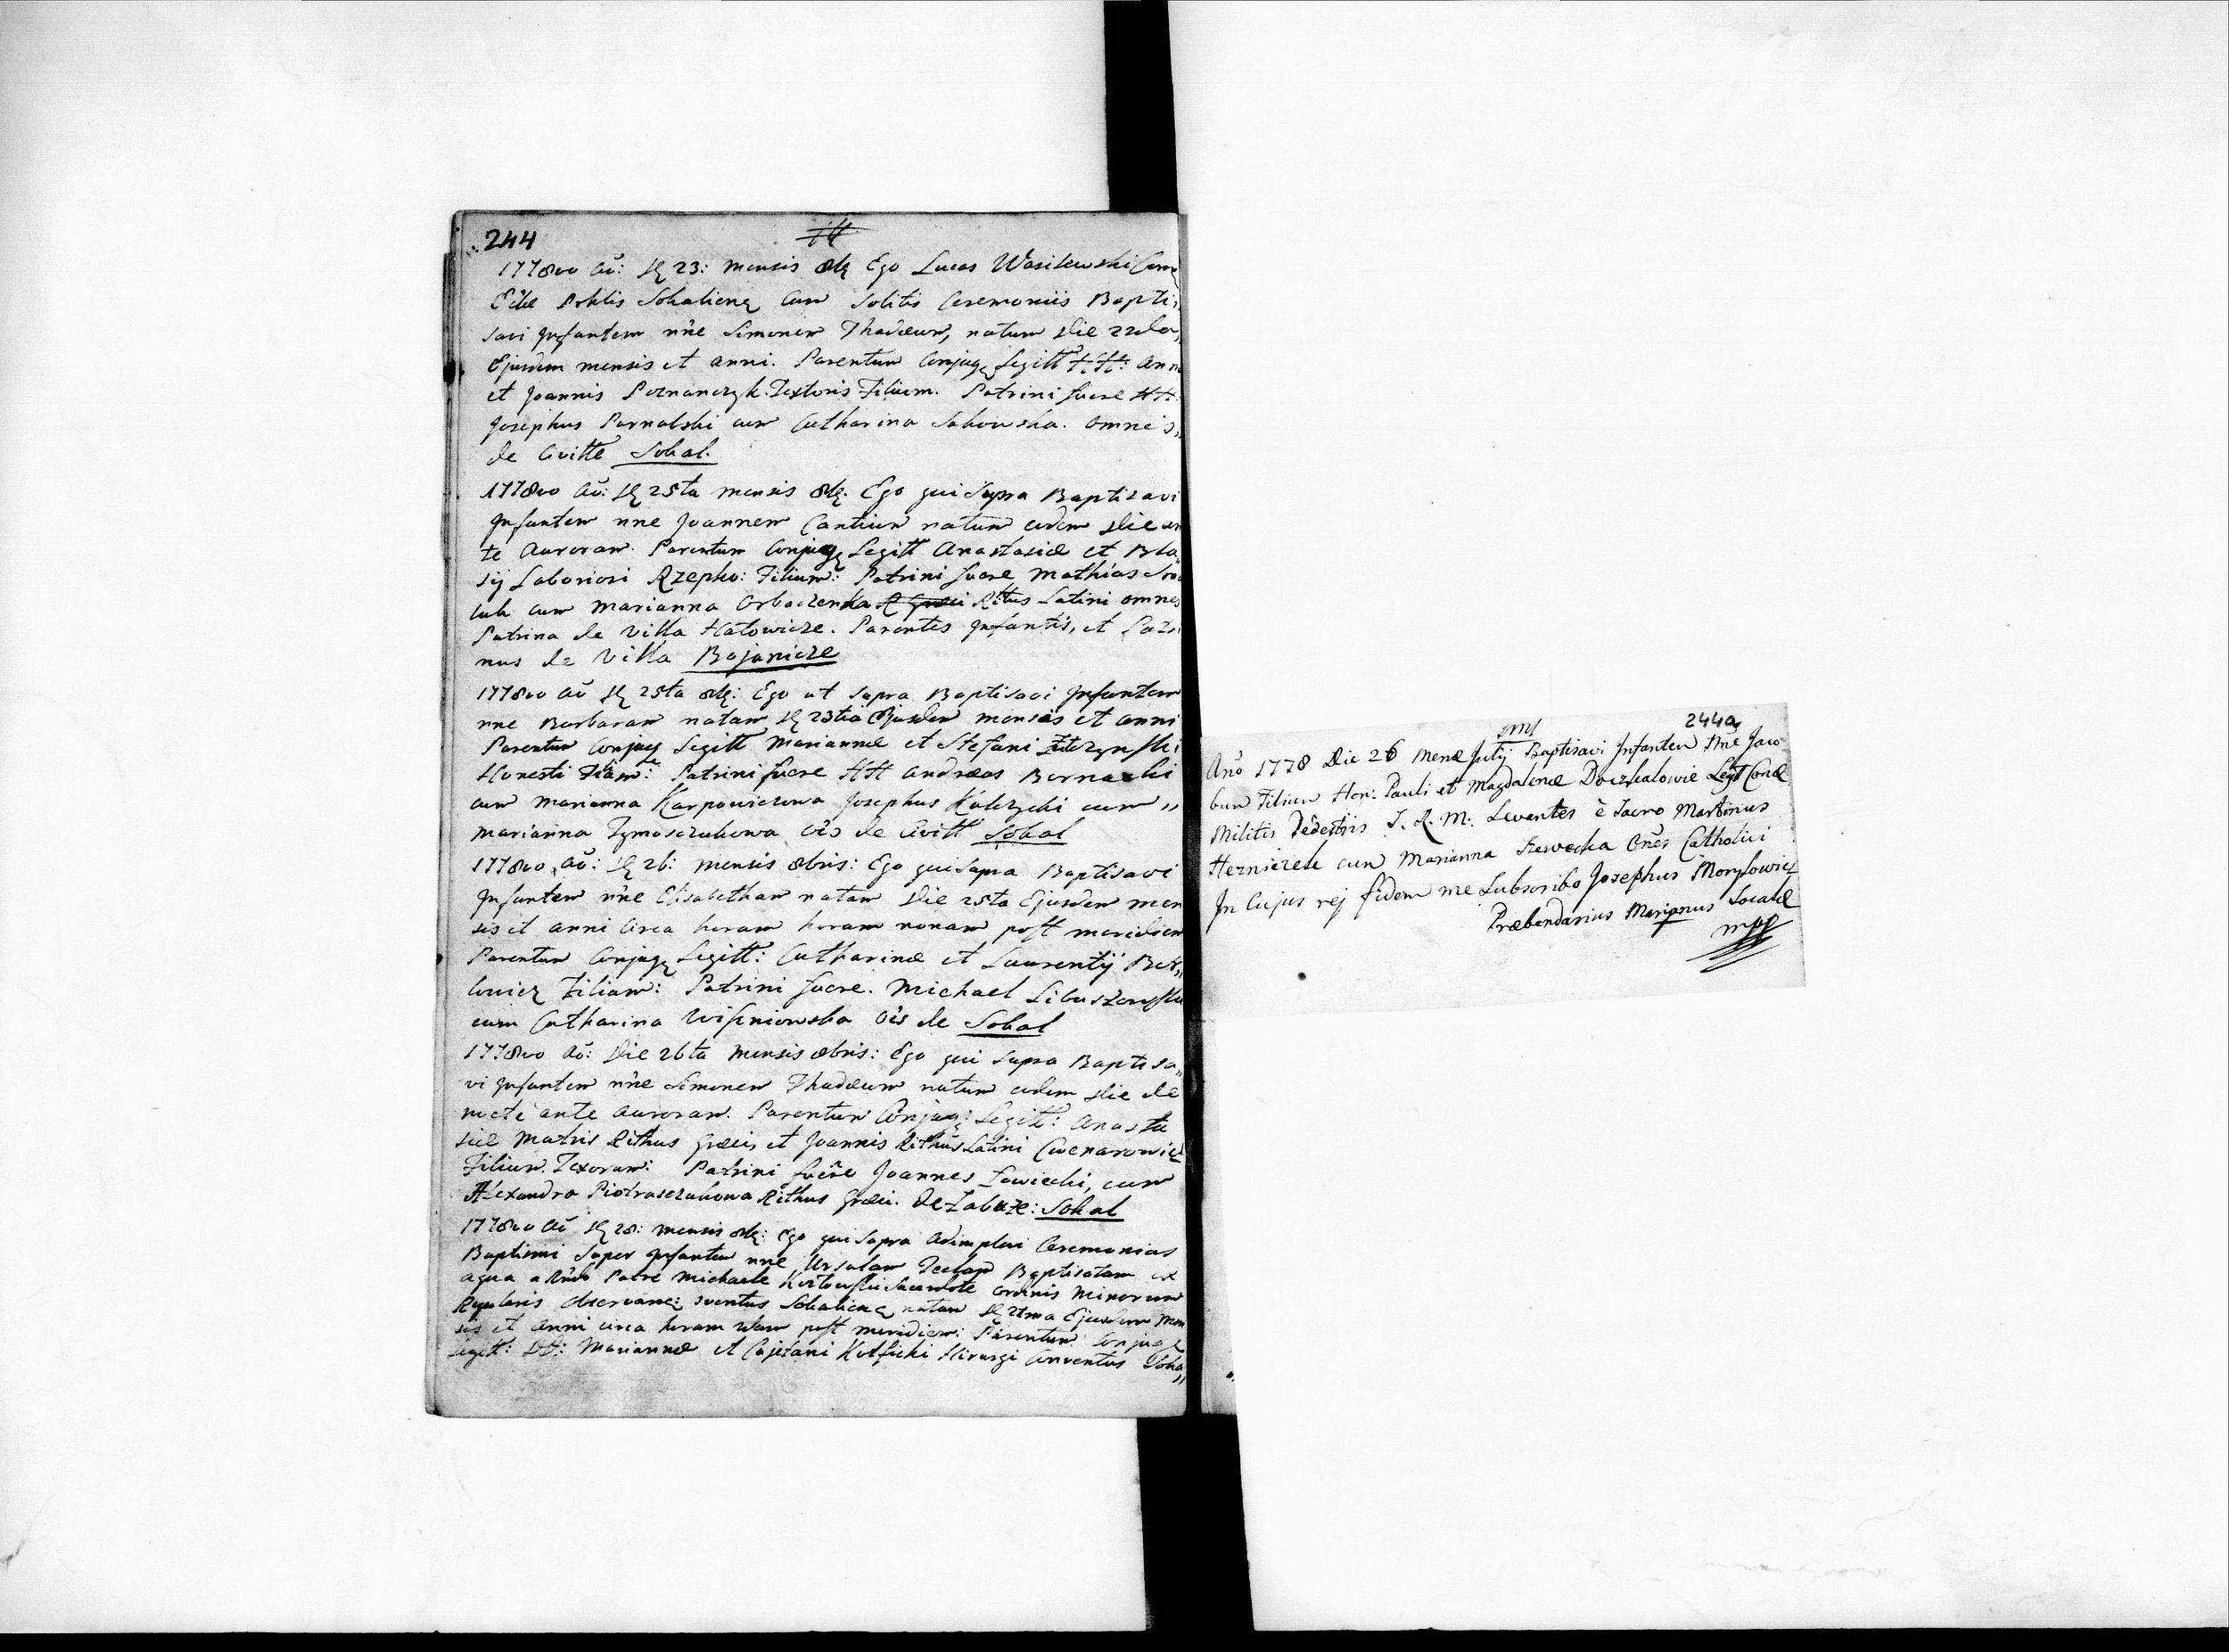 244
1778vo Aō: D 23: mensis 8bris Ego Lucas Wasilewski Com
Ecclae Sokaliensis cum solitis Ceremoniis Bapti,,
savi Infantem nne Simonem Thadæum, natum Die 22da,
Ejusdem mensis et anni. Parentum Conjug Legitt HH: Anna
et Joannis Poznanczyk. Textoris Filium. Patrini fuere HH.
Josephus Parnalski cum Catharina Sakowska. omnes,,
de Civitte Sokal.
1778vo Aō: D 25ta mensis 8bris. Ego qui supra Baptizavi
Infantem nne Joannem Cantium natum eodem Die an
te Auroram. Parentum Conjug Legitt Anastasiæ et Bla
sij Laboriosi Rzepko: Filium: Patrini fuere Mathias
cum Marianna Ritus Latini omnes
Patrina de Villa Hatowicze. Parentes Infantis, et Patri
nus de Villa Bojanicze
1778vo Aō D 25ta 8bris: Ego ut supra Baptisavi Infantem
nne Barbaram natam D 23tia Ejusdem mensis et anni
Parentum Conjug Legitt Mariannæ et Stefani
Honesti Filiam: Patrini fuere HH Andreas Bernacki
cum Marianna Karpowiczowa Josephus Kulczycki cum,,
Marianna Tymoszukowa oēs de Civitt Sokal
1778vo Aō: D 26: mensis 8bris: Ego qui supra Baptisavi
Infantem nne Elisabetham natam Die 25ta Ejusdem men
sis et anni circa horam horam nonam post meridiem
Parentum Conjug Legitt: Catharinæ et Laurentij Ber,,
Filiam: Patrini fuere. Michael
cum Catharina Wisniowska oēs de Sokal
1778vo Aō: Die 26ta mensis 8bris: Ego qui supra Baptisa,,
vi Infantem nne Simonem Thadæum natum eodem Die de
nocte ante auroram. Parentum Conjug: Legitt: Anasta
siæ Matris Rithus Græci, et Joannis Rithus Latini
Filium. Textorum: Patrini fuēre Joannes Zawiecki, cum
Alexandra Piotraszukowa Rithus Græci. de Zabuże: Sokal
1778vo Aō D 28: mensis 8bris: Ego qui supra adimplevi Ceremonias
Baptismi super Infantem nne Ursulam Teclam Baptisatam ex
aqua a Rndo Patre Michaele Sacerdote Ordinis Minorum
Regularis Observanc: Conventus Sokaliensis natam D 21ma Ejusdem Men
sis et anni circa horam 2dam post meridiem: Parentum Conjug
Legitt: DD: Mariannæ et Cajetani Chirurgi Conventus Soka,,
244a
Año 1778 Die 26 Mense Julij Baptisavi Infantem Nne Jaco
bum Filium Hon: Pauli et Magdalenæ Doczkalowie Legit Cond
Militis Pedestris S. R. M: Levantes è Sacro Martinus
cum Marianna Szewecka Omēs Catholici
In Cujus rej fidem me Subscribo Josephus Morylowicz
Præbendarius Marianus Socalæ
mpp